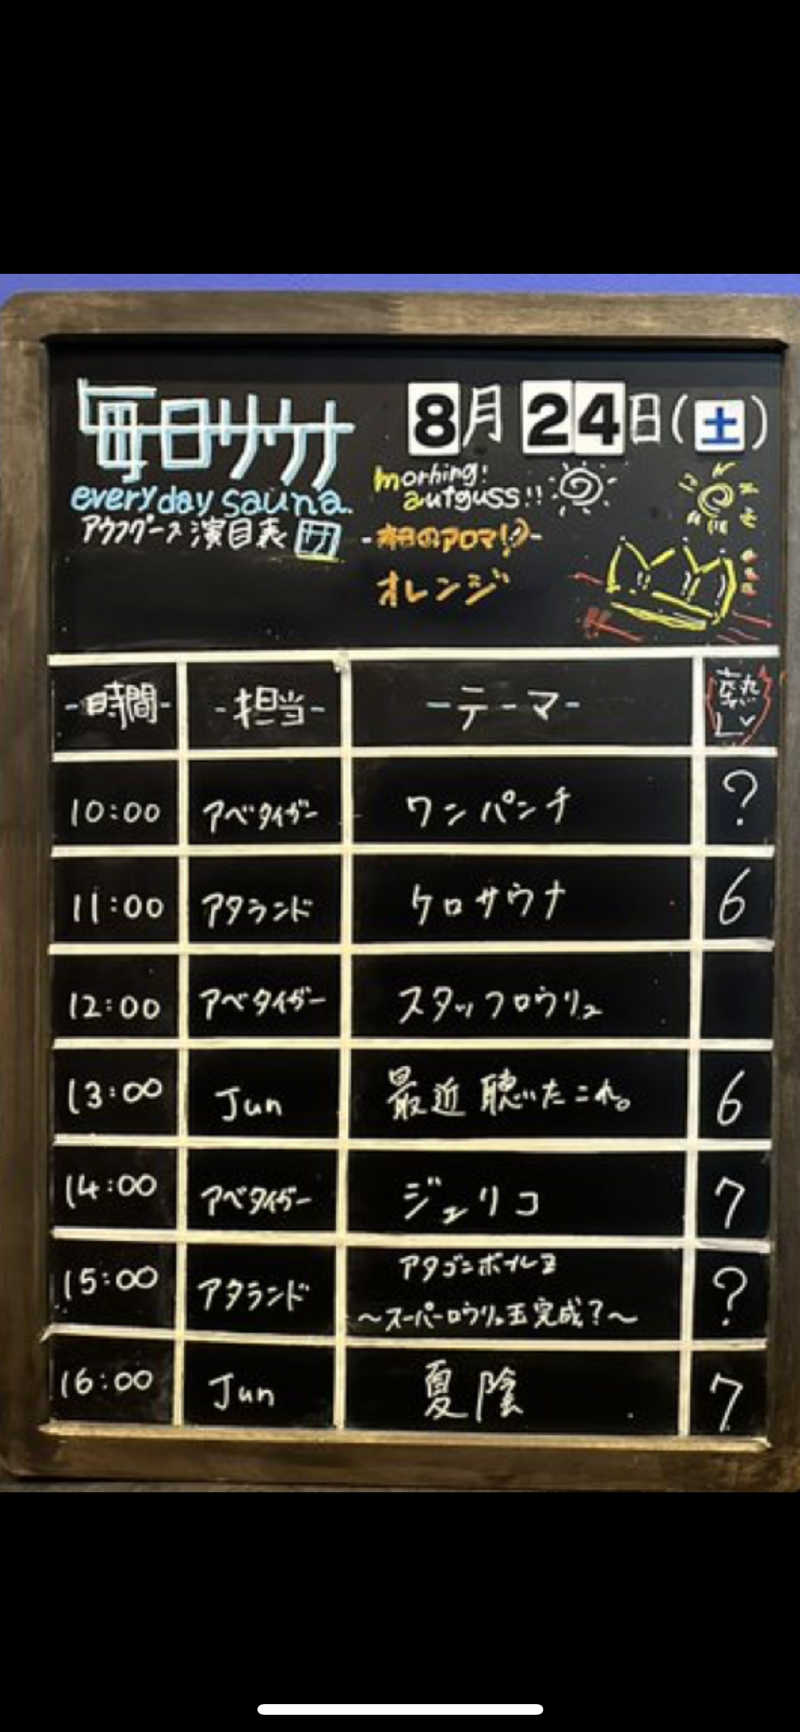 毎日サウナ
8月24日(土)
everyday sauna.
morning!
autguss!!
アウフグース演目表 サ
-本日のアロマ!-
オレンジ
-時間- -担当- -テーマ- 熱Lv
10:00 アベタイガー ワンパンチ ?
11:00 アタランド ケロサウナ 6
12:00 アベタイガー スタッフロウリュ
13:00 Jun 最近聴いたこれ。 6
14:00 アベタイガー ジェリコ 7
15:00 アタランド アタゴンボールZ ?
～スーパーロウリュ玉完成?～
16:00 Jun 夏陰 7